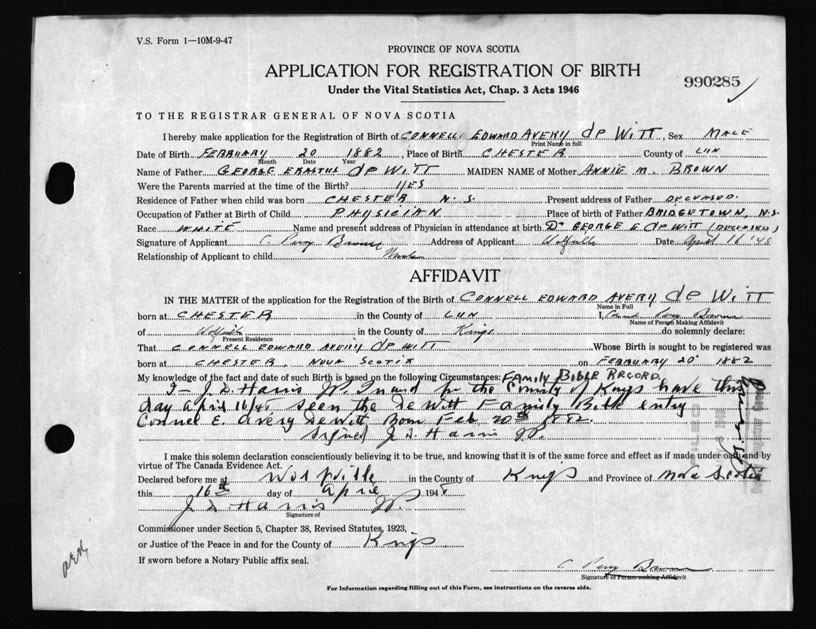 V.S. Form 1—10M-9-47
PROVINCE OF NOVA SCOTIA
APPLICATION FOR REGISTRATION OF BIRTH
990285
Under the Vital Statistics Act, Chap. 3 Acts 1946
TO THE REGISTRAR GENERAL OF NOVA SCOTIA
I hereby make application for the Registration of Birth of CONNELL EDWARD AVERY de WITT, Sex MALE
Print Name in full
Date of Birth FEBRUARY 20 1882, Place of Birth CHESTER County of LUN
Month Date Year
Name of Father GEORGE ERASTUS de WITT MAIDEN NAME of Mother ANNIE M. BROWN
Were the Parents married at time of the Birth? YES
Residence of Father when child was born CHESTER N.S. Present address of Father DECEASED.
Occupation of Father at Birth of Child PHYSICIAN Place of birth of Father BRIDGETOWN, N.S.
Race WHITE Name and present address of Physician in attendance at birth Dr GEORGE E de WITT (DECEASED)
Signature of Applicant C. Pery Brown Address of Applicant Wolfville Date April 16 '48
Relationship of Applicant to child
AFFIDAVIT
IN THE MATTER of the application for the Registration of the Birth of CONNELL EDWARD AVERY de WITT
Name in Full
born at CHESTER in the County of LUN I, Pery Brown
Name of Person Making Affidavit
of Wolfville in the County of Kings do solemnly declare:
Present Residence
That CONNELL EDWARD AVERY de WITT Whose Birth is sought to be registered was
born at CHESTER, NOVA SCOTIA on FEBRUARY 20 1882
My knowledge of the fact and date of such Birth is based on the following Circumstances: FAMILY BIBLE RECORD
I J D Harris JP. In and for the County of Kings have this
day April 16/48 seen the DeWitt Family Bible entry
Connel E. Avery Dewitt Born Feb 20th 1882.
Signed J D Harris JP.
I make this solemn declaration conscientiously believing it to be true, and knowing that it is of the same force and effect as if made under oath and by
virtue of The Canada Evidence Act.
Declared before me at Wolfville in the County of Kings and Province of Nova Scotia
this 16th day of April 1948
J D Harris JP.
Signature of
Commissioner under Section 5, Chapter 38, Revised Statutes, 1923,
or Justice of the Peace in and for the County of Kings
If sworn before a Notary Public affix seal.
C Pery Brown
Signature of Person making Affidavit
For Information regarding filling out of this Form, see instructions on the reverse side.